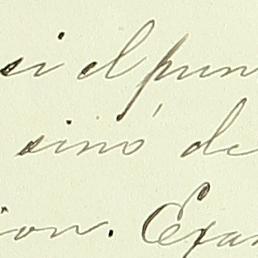 si el pun
sinó de
ion. Exa